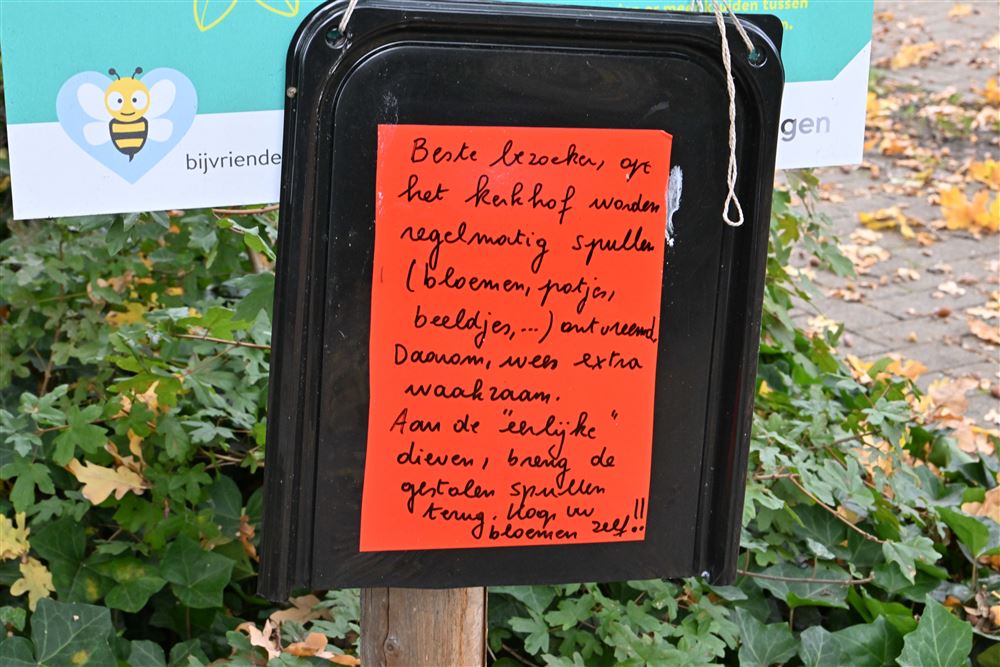 tussen
bijvriende
gen
Beste bezoeker, op
het kerkhof worden
regelmatig spullen
(bloemen, potjes,
beeldjes,...) ontvreemd.
Daarom, wees extra
waakzaam.
Aan de "eerlijke"
dieven, breng de
gestolen spullen
terug. Koop uw
bloemen zelf!!